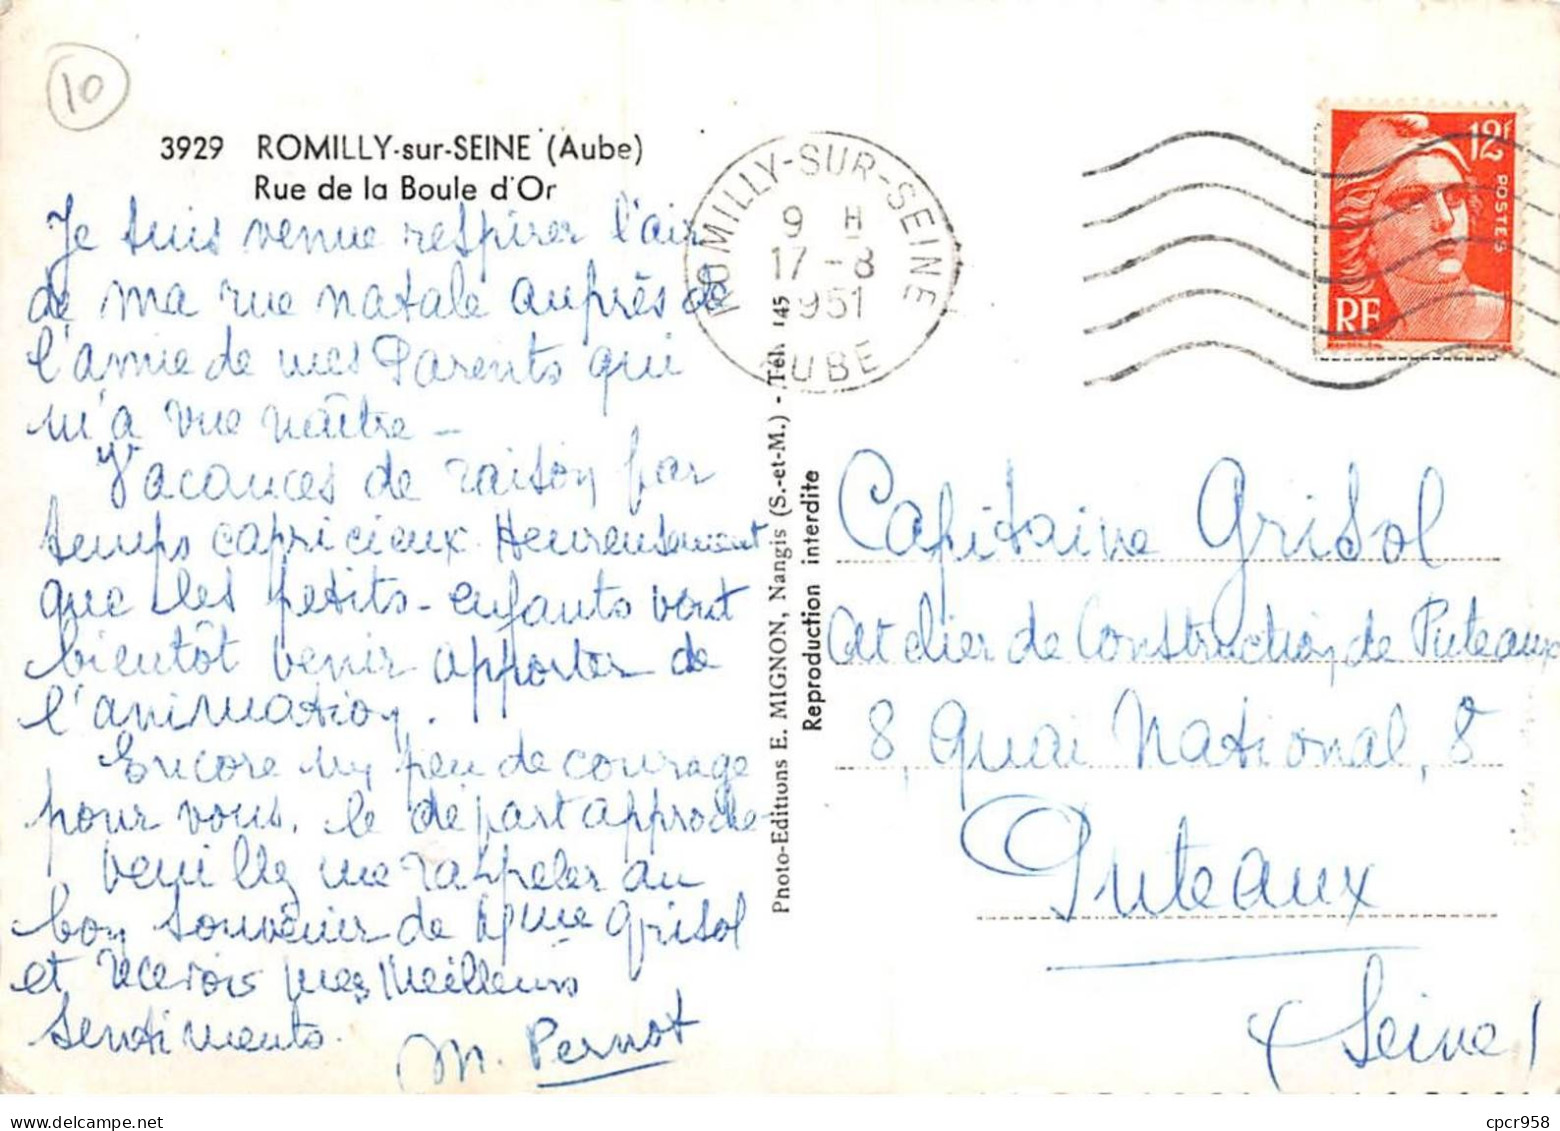 10
3929 ROMILLY-sur-SEINE (Aube)
Rue de la Boule d'Or
Je suis venue respirer l'air
de ma rue natale auprès de
l'amie de mes Parents qui
m'a vue naître –
Vacances de raison par
temps capricieux. Heureusement
que les petits-enfants vont
bientôt venir apporter de
l'animation.
Encore un peu de courage
pour vous. le départ approche –
Veuillez me rappeler au
bon souvenir de Mme Grisol
et mes Meilleurs
Sentiments.
M. Pernot
Photo-Editions E. MIGNON, Nangis (S.-et-M.) - Tél. 145
Reproduction interdite
ROMILLY-SUR-SEINE
9 H
17-8
1951
AUBE
12F
POSTES
RF
Capitaine Grisol
Atelier de Construction de Puteaux
8, Quai National, 8
Puteaux
(Seine)
cpcr958